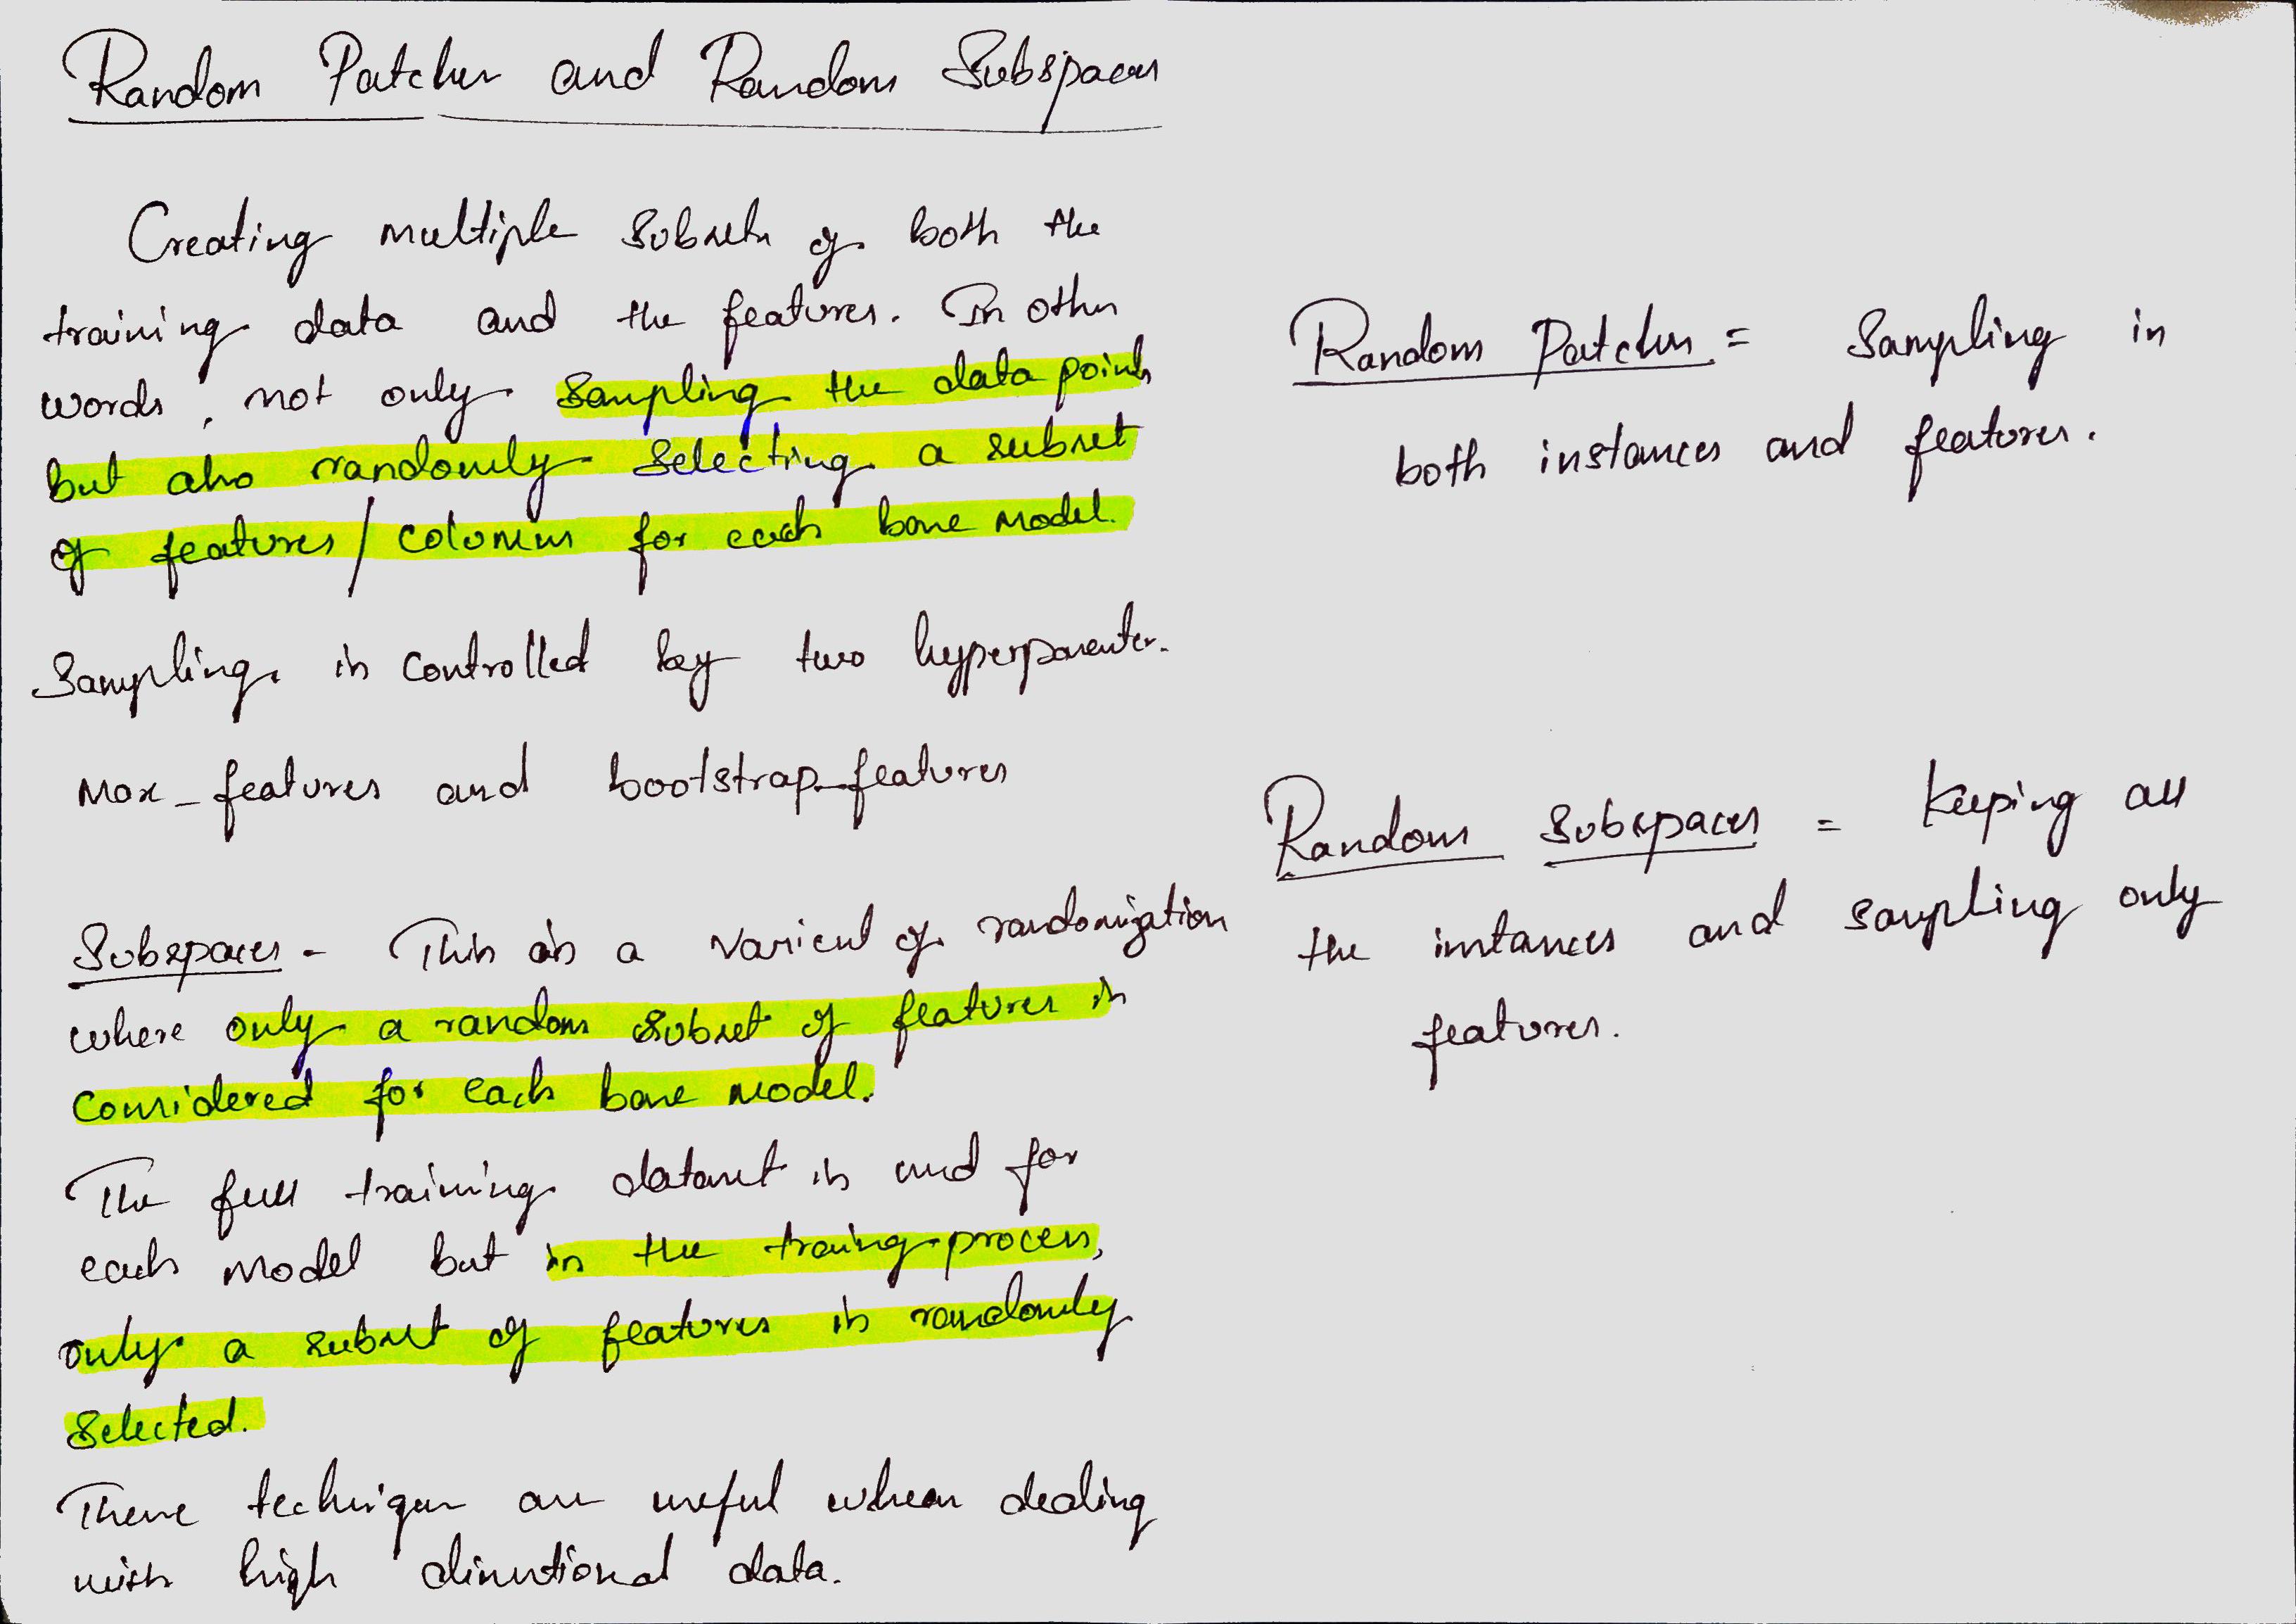 Random Patches and Random Subspaces
Creating multiple subsets of both the
training data and the features. In other
words, not only sampling the data points
but also randomly selecting a subset
of features/columns for each base model.
Sampling is controlled by two hyperparameter.
Max_features and bootstrap_features
Subspaces - This is a varient of randomization
where only a random subset of features is
considered for each base model.
The full training dataset is used for
each model but in the traing process,
only a subset of features is randomly
selected.
These techniques are useful when dealing
with high dimentional data.
Random Patches = Sampling in
both instances and features.
Random Subspaces = Keeping all
the instances and sampling only
features.